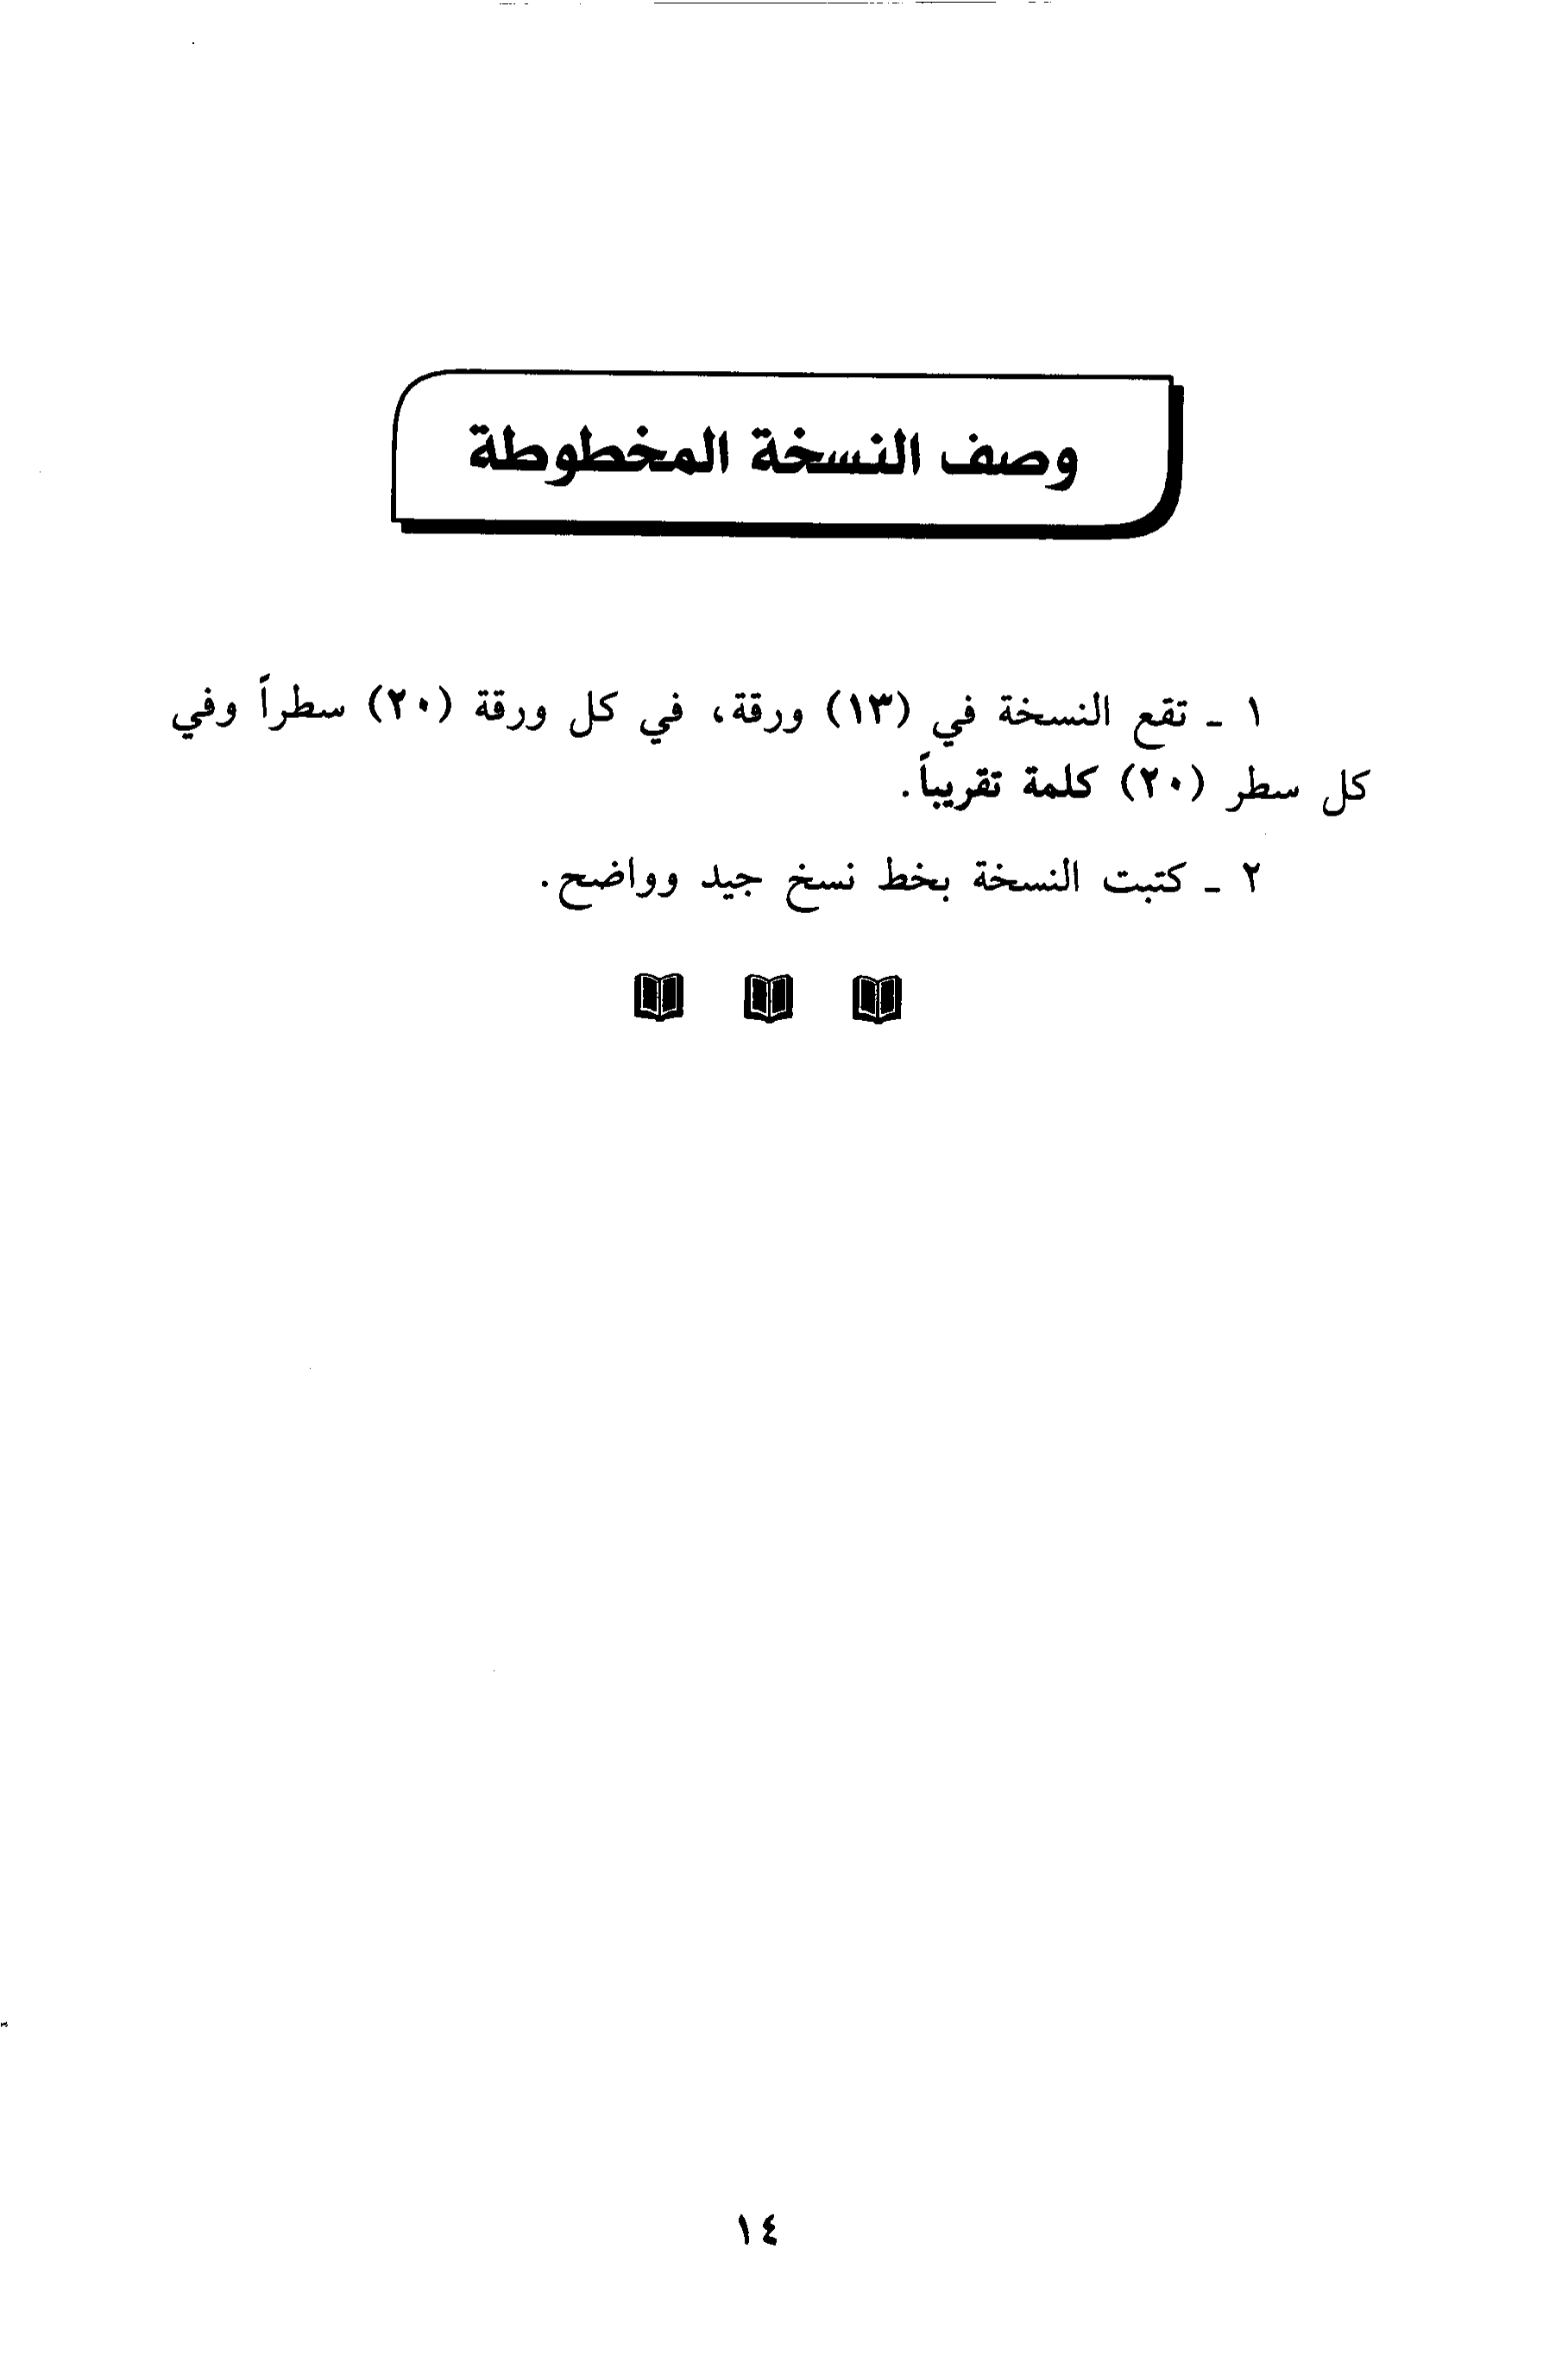 وصف النسخة المخطوطة
١ ـ تقع النسخة في (١٣) ورقة، في كل ورقة (٢٠) سطراً وفي
كل سطر (٢٠) كلمة تقريباً.
٢ ـ كتبت النسخة بخط نسخ جيد وواضح.
١٤